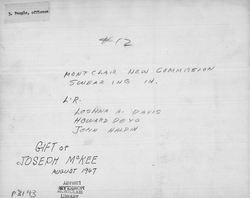 S. People, officers
#12
MONTCLAIR NEW COMMISSION
SWEARING IN.
L-R.
A. DAVIS
HOWARD DEYO
JOHN
GIFT OF
JOSEPH McKEE
AUGUST 1967
MONTCLAIR
LIBRARY